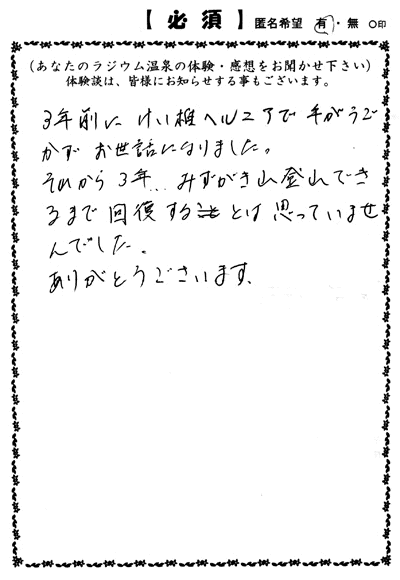 【 必 須 】 匿名希望 有・無 ○印
(あなたのラジウム温泉の体験・感想をお聞かせ下さい)
体験談は、皆様にお知らせする事もございます。
3年前に けい椎ヘルニアで 手がうご
かず お世話になりました。
それから 3年… みずがき山登山でき
るまで 回復する とは 思っていませ
んでした。
ありがとうございます。